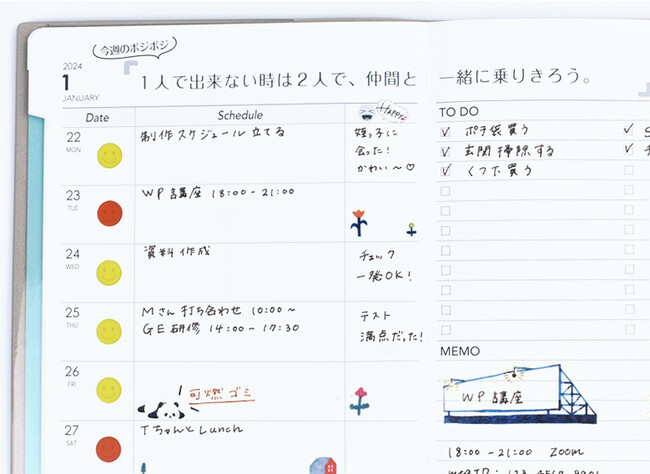 今週のポジポジ
2024
1
JANUARY
1人で出来ない時は2人で、仲間と一緒に乗りきろう。
Date
Schedule
Happy
22
MON
制作スケジュール立てる
姪っ子に
会った!
かわい〜♡
23
TUE
WP講座 18:00-21:00
24
WED
資料作成
チェック
一発OK!
25
THU
Mさん打ち合わせ 10:00〜
GE研修 14:00-17:30
テスト
満点だった!
26
FRI
可燃ゴミ
27
SAT
TちゃんとLunch
TO DO
ポチ袋買う
玄関掃除する
くつ下買う
MEMO
WP講座
18:00-21:00 ZOOM